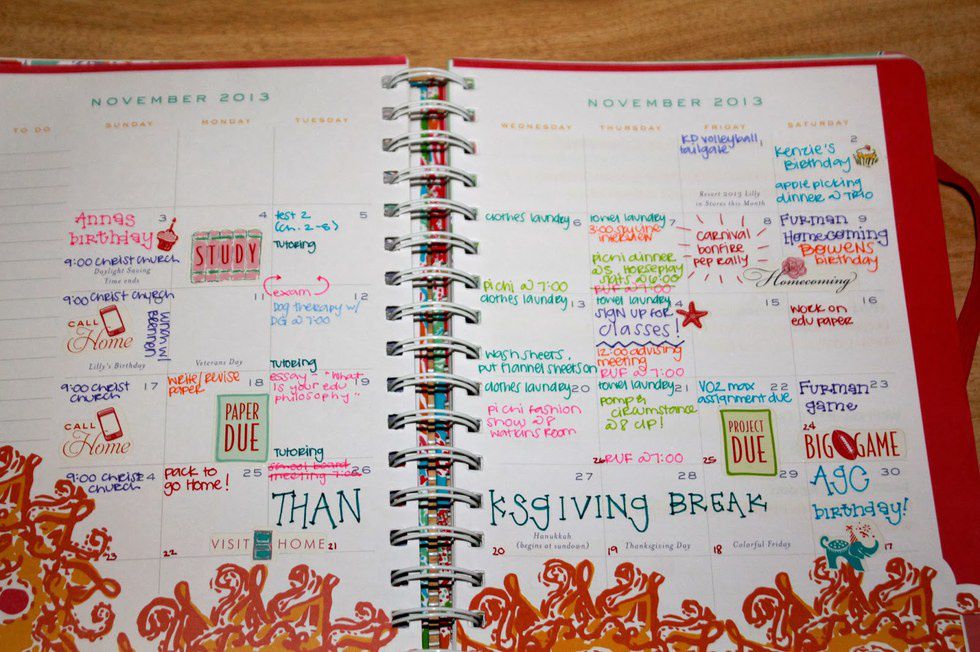 NOVEMBER 2013
TO DO
SUNDAY
MONDAY
TUESDAY
Annas
birthday
3
9:00 christ church
Daylight Saving
Time ends
4
STUDY
test 2
(ch. 2-8)
5
Tutoring
9:00 christ church
CALL
Home
Lunch w/
Lilly's Birthday
11
Veterans Day
exam
12
Dog therapy w/
DG @ 7:00
Tutoring
9:00 christ
church
17
CALL
Home
write/revise
paper
18
PAPER
DUE
essay "what
is your edu
philosophy"
19
Tutoring
9:00 Christ
church
4
23
pack to
go Home!
25
22
VISIT HOME
school board
meeting 7:00
26
THAN
21
NOVEMBER 2013
WEDNESDAY
THURSDAY
FRIDAY
SATURDAY
KD volleyball,
tailgate
Resort 2013 Lilly
in Stores this Month
2
Kenzie's
Birthday
apple picking
dinner @ 7:10
clothes laundry
6
pi chi @ 7:00
towel laundry
7
3:00
interview
pi chi dinner
@5, Horseplay
@ 6:00
RUF @ 7:00
8
CARNIVAL
bonfire
pep rally
Homecoming
Furman
Homecoming
9
BOWENS
birthday
clothes laundry
13
wash sheets,
put flannel sheets on
towel laundry
4
sign up for
classes!
12:00 advising
meeting
RUF @ 7:00
15
16
work on
edu paper
clothes laundry
20
pi chi fashion
show @8
watkins Room
towel laundry
21
pomp &
circumstance
@8 up!
26
RUF @ 7:00
VO2 max
assignment due
22
PROJECT
DUE
25
Furman
game
23
24
BIG GAME
27
28
29
KSGIVING BREAK
Hanukkah
(begins at sundown)
20
19
Thanksgiving Day
18
Colorful Friday
30
AGC
birthday!
17